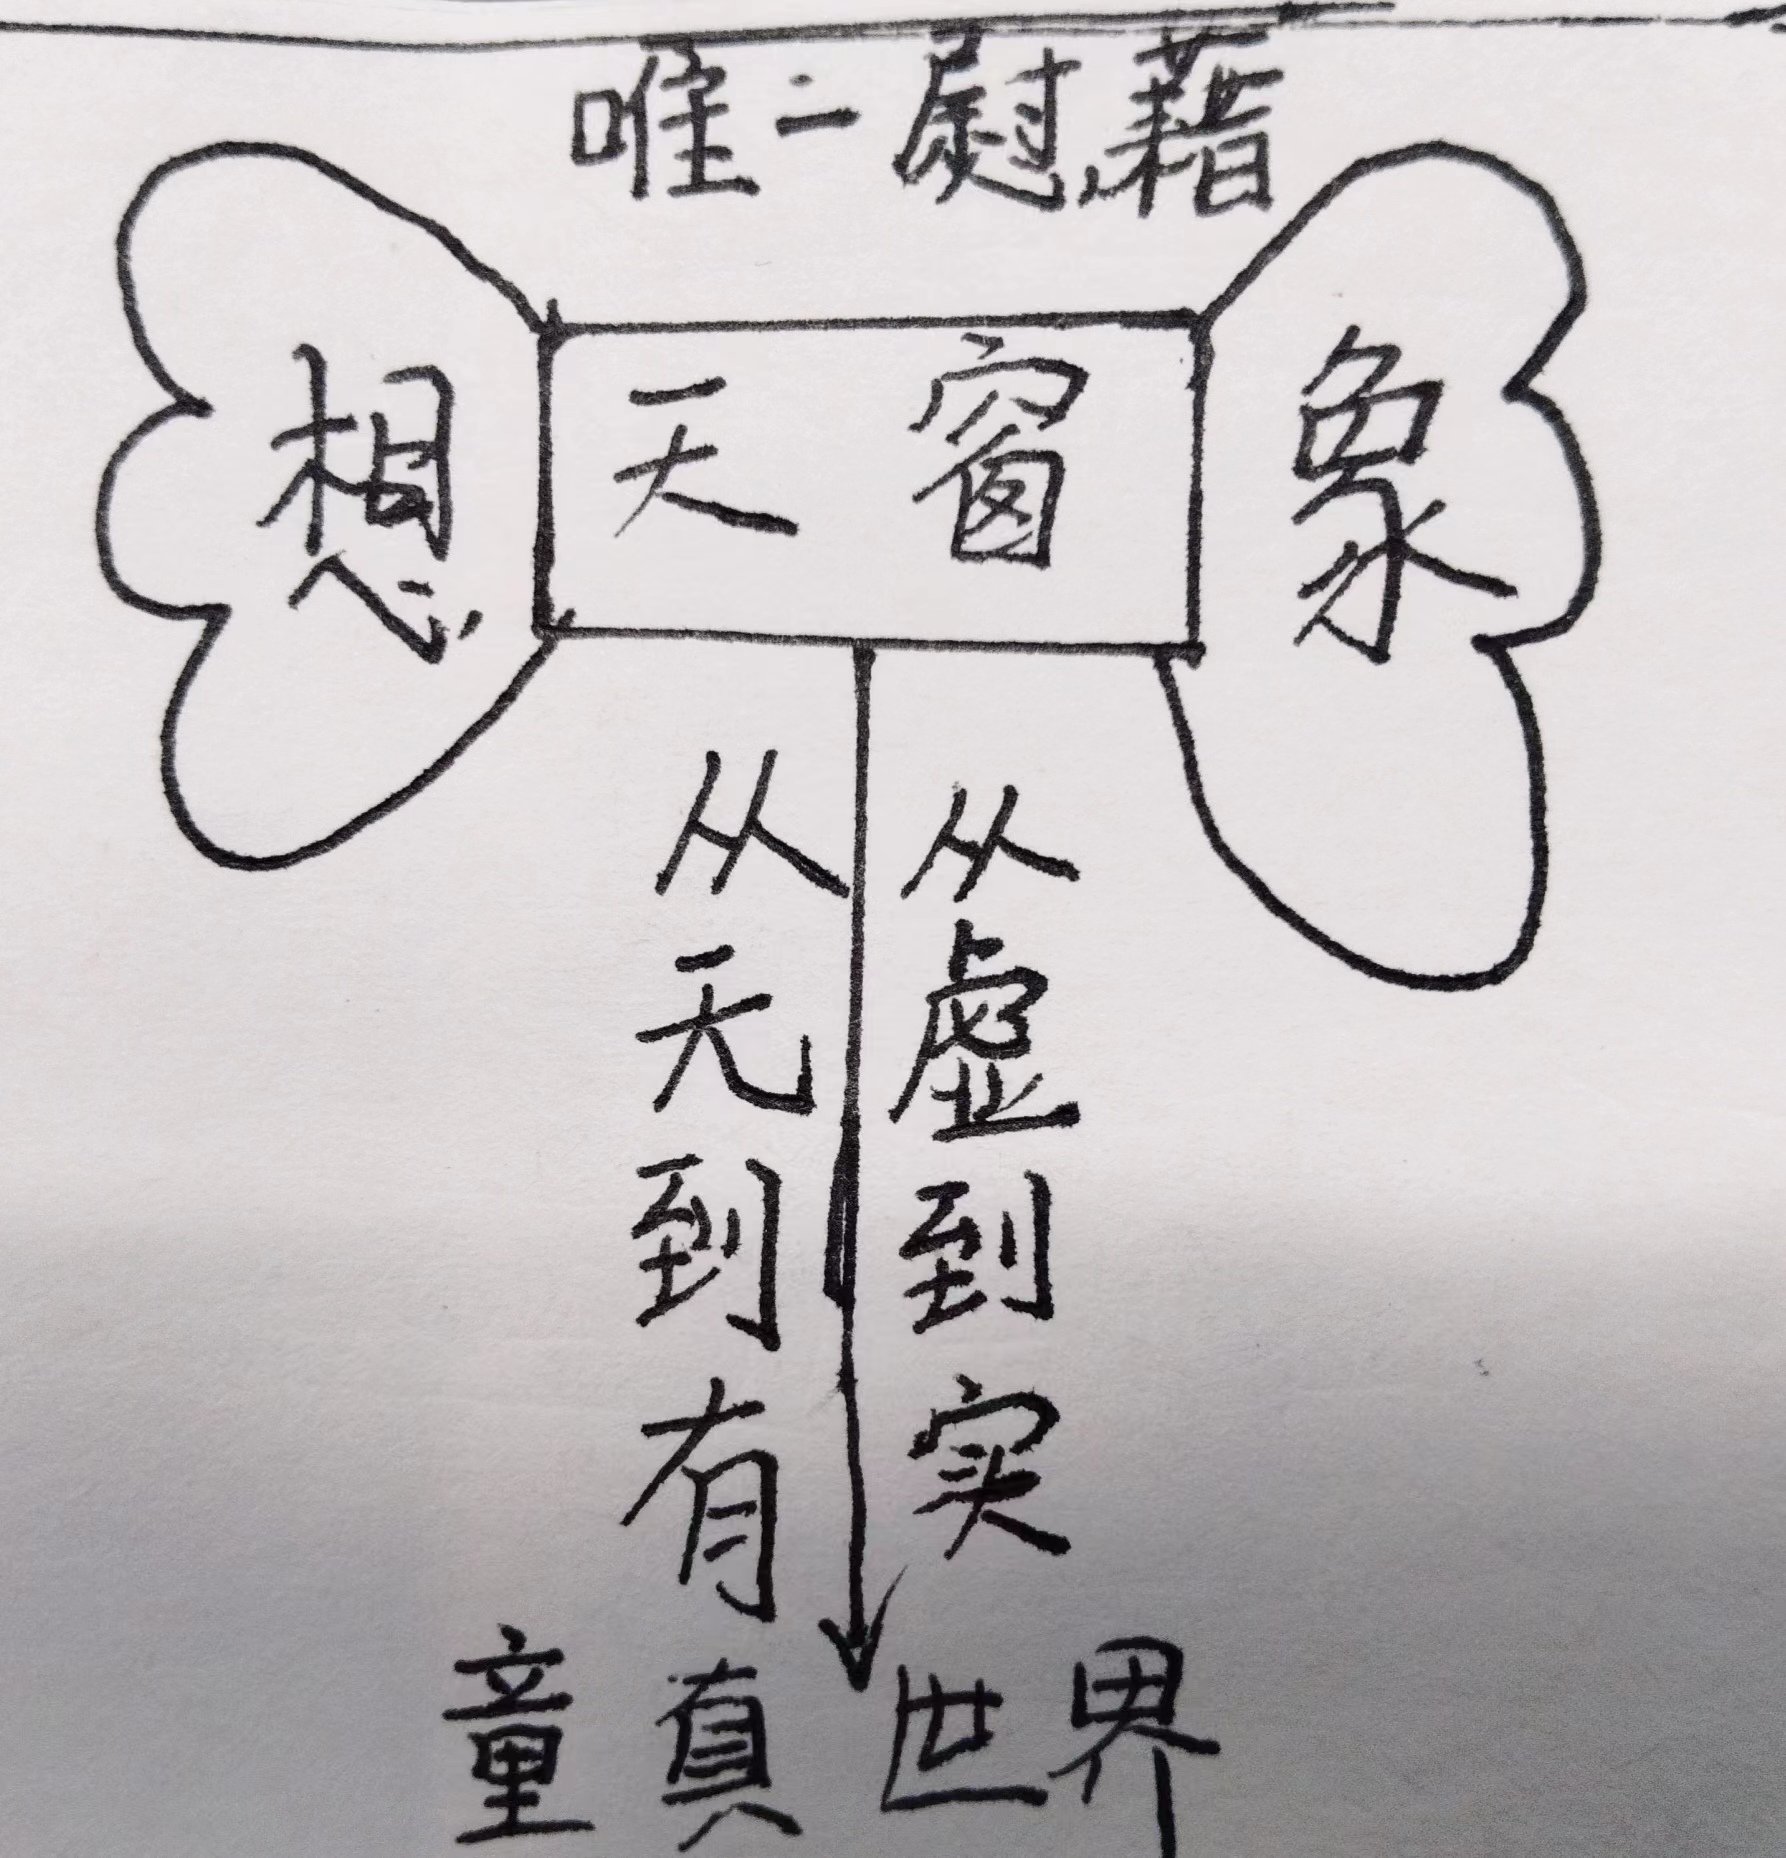 唯二慰藉
想 天窗 象
从无到有
从虚到实
童真世界